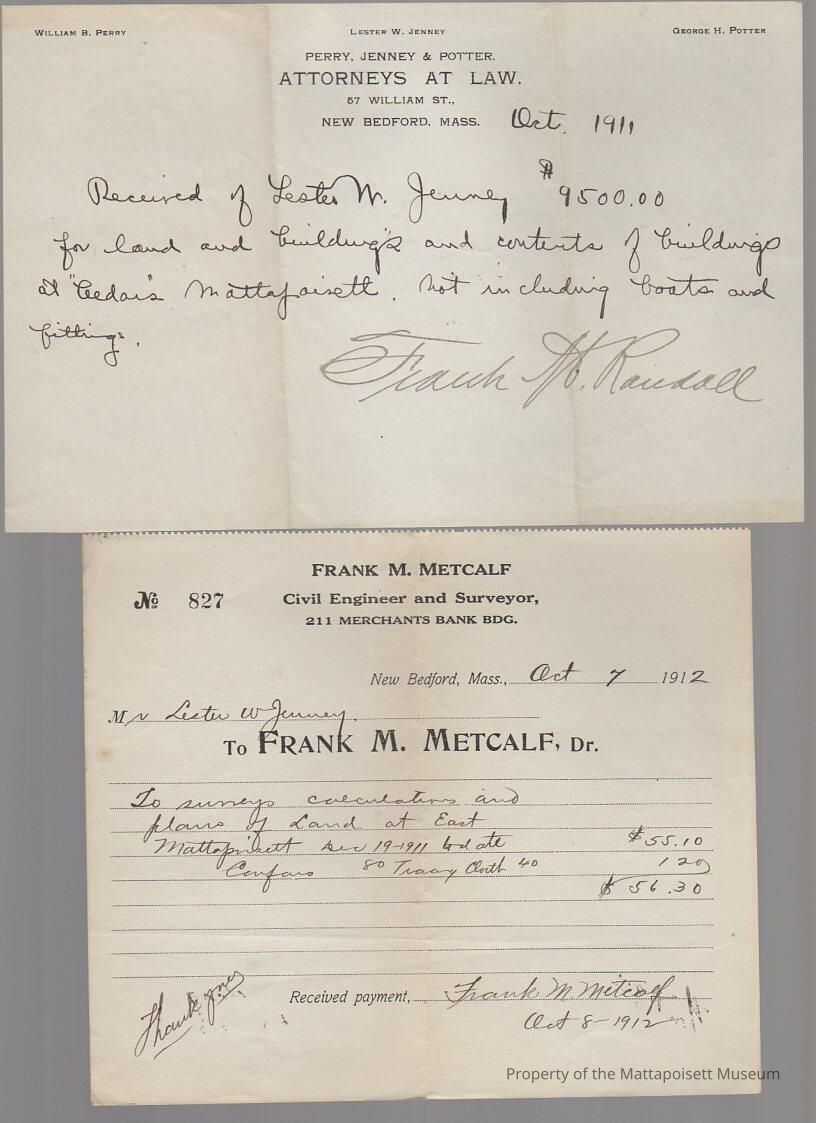 William B. Perry Lester W. Jenney George H. Potter
PERRY, JENNEY & POTTER,
ATTORNEYS AT LAW,
57 WILLIAM ST.,
NEW BEDFORD, MASS. Oct. 1911
Received of Lester W. Jenney $9500.00
for land and building's and contents of buildings
at "Cedars" Mattapoisett. Not including boats and
fittings.
Frank H. Randall
FRANK M. METCALF
No 827 Civil Engineer and Surveyor,
211 MERCHANTS BANK BDG.
New Bedford, Mass., Oct 7 1912
Mr Lester W Jenney.
To FRANK M. METCALF, Dr.
To surveys calculations and
plans of Land at East
Mattapoisett Dec 19-1911 to date $55.10
80 Tracing Cloth 40 1 20
$56.30
Thank you
Received payment, Frank M Metcalf
Oct 8-1912
Property of the Mattapoisett Museum